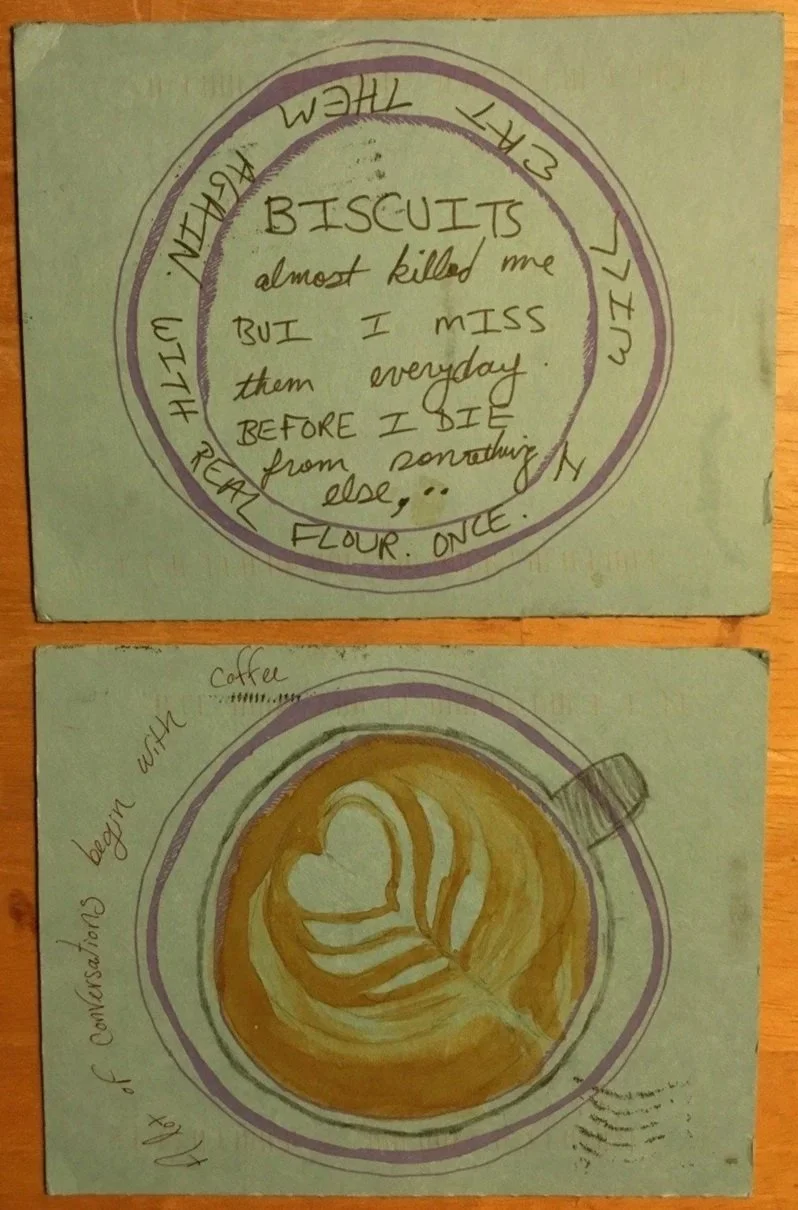 BISCUITS
almost killed me
BUT I MISS
them everyday.
BEFORE I DIE
from something
else,..
I WILL EAT THEM AGAIN. WITH REAL FLOUR. ONCE.
A lot of conversations begin with coffee